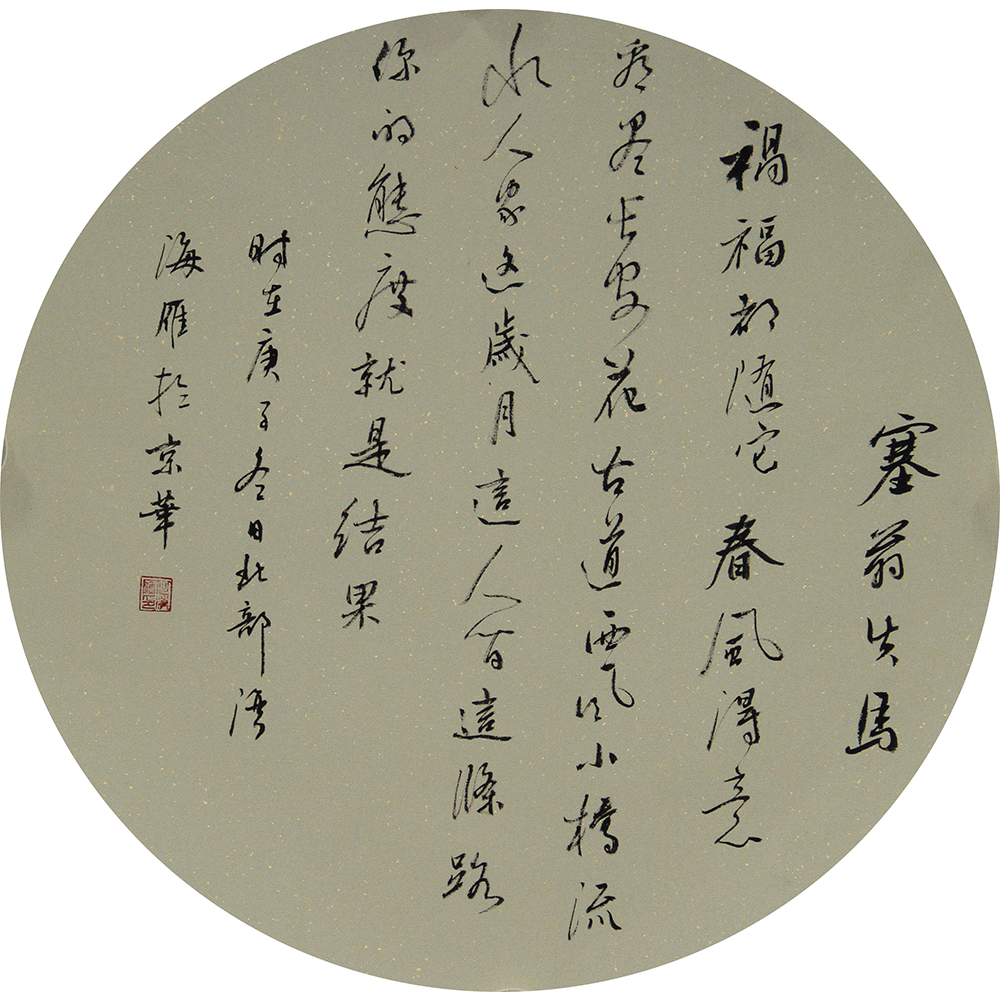 塞翁失馬
禍福都随它春風得意
看尽长安花古道西风小橋流
水人家这歲月這人间這條路
你的態度就是結果
时在庚子冬日北部湾
海雁於京華